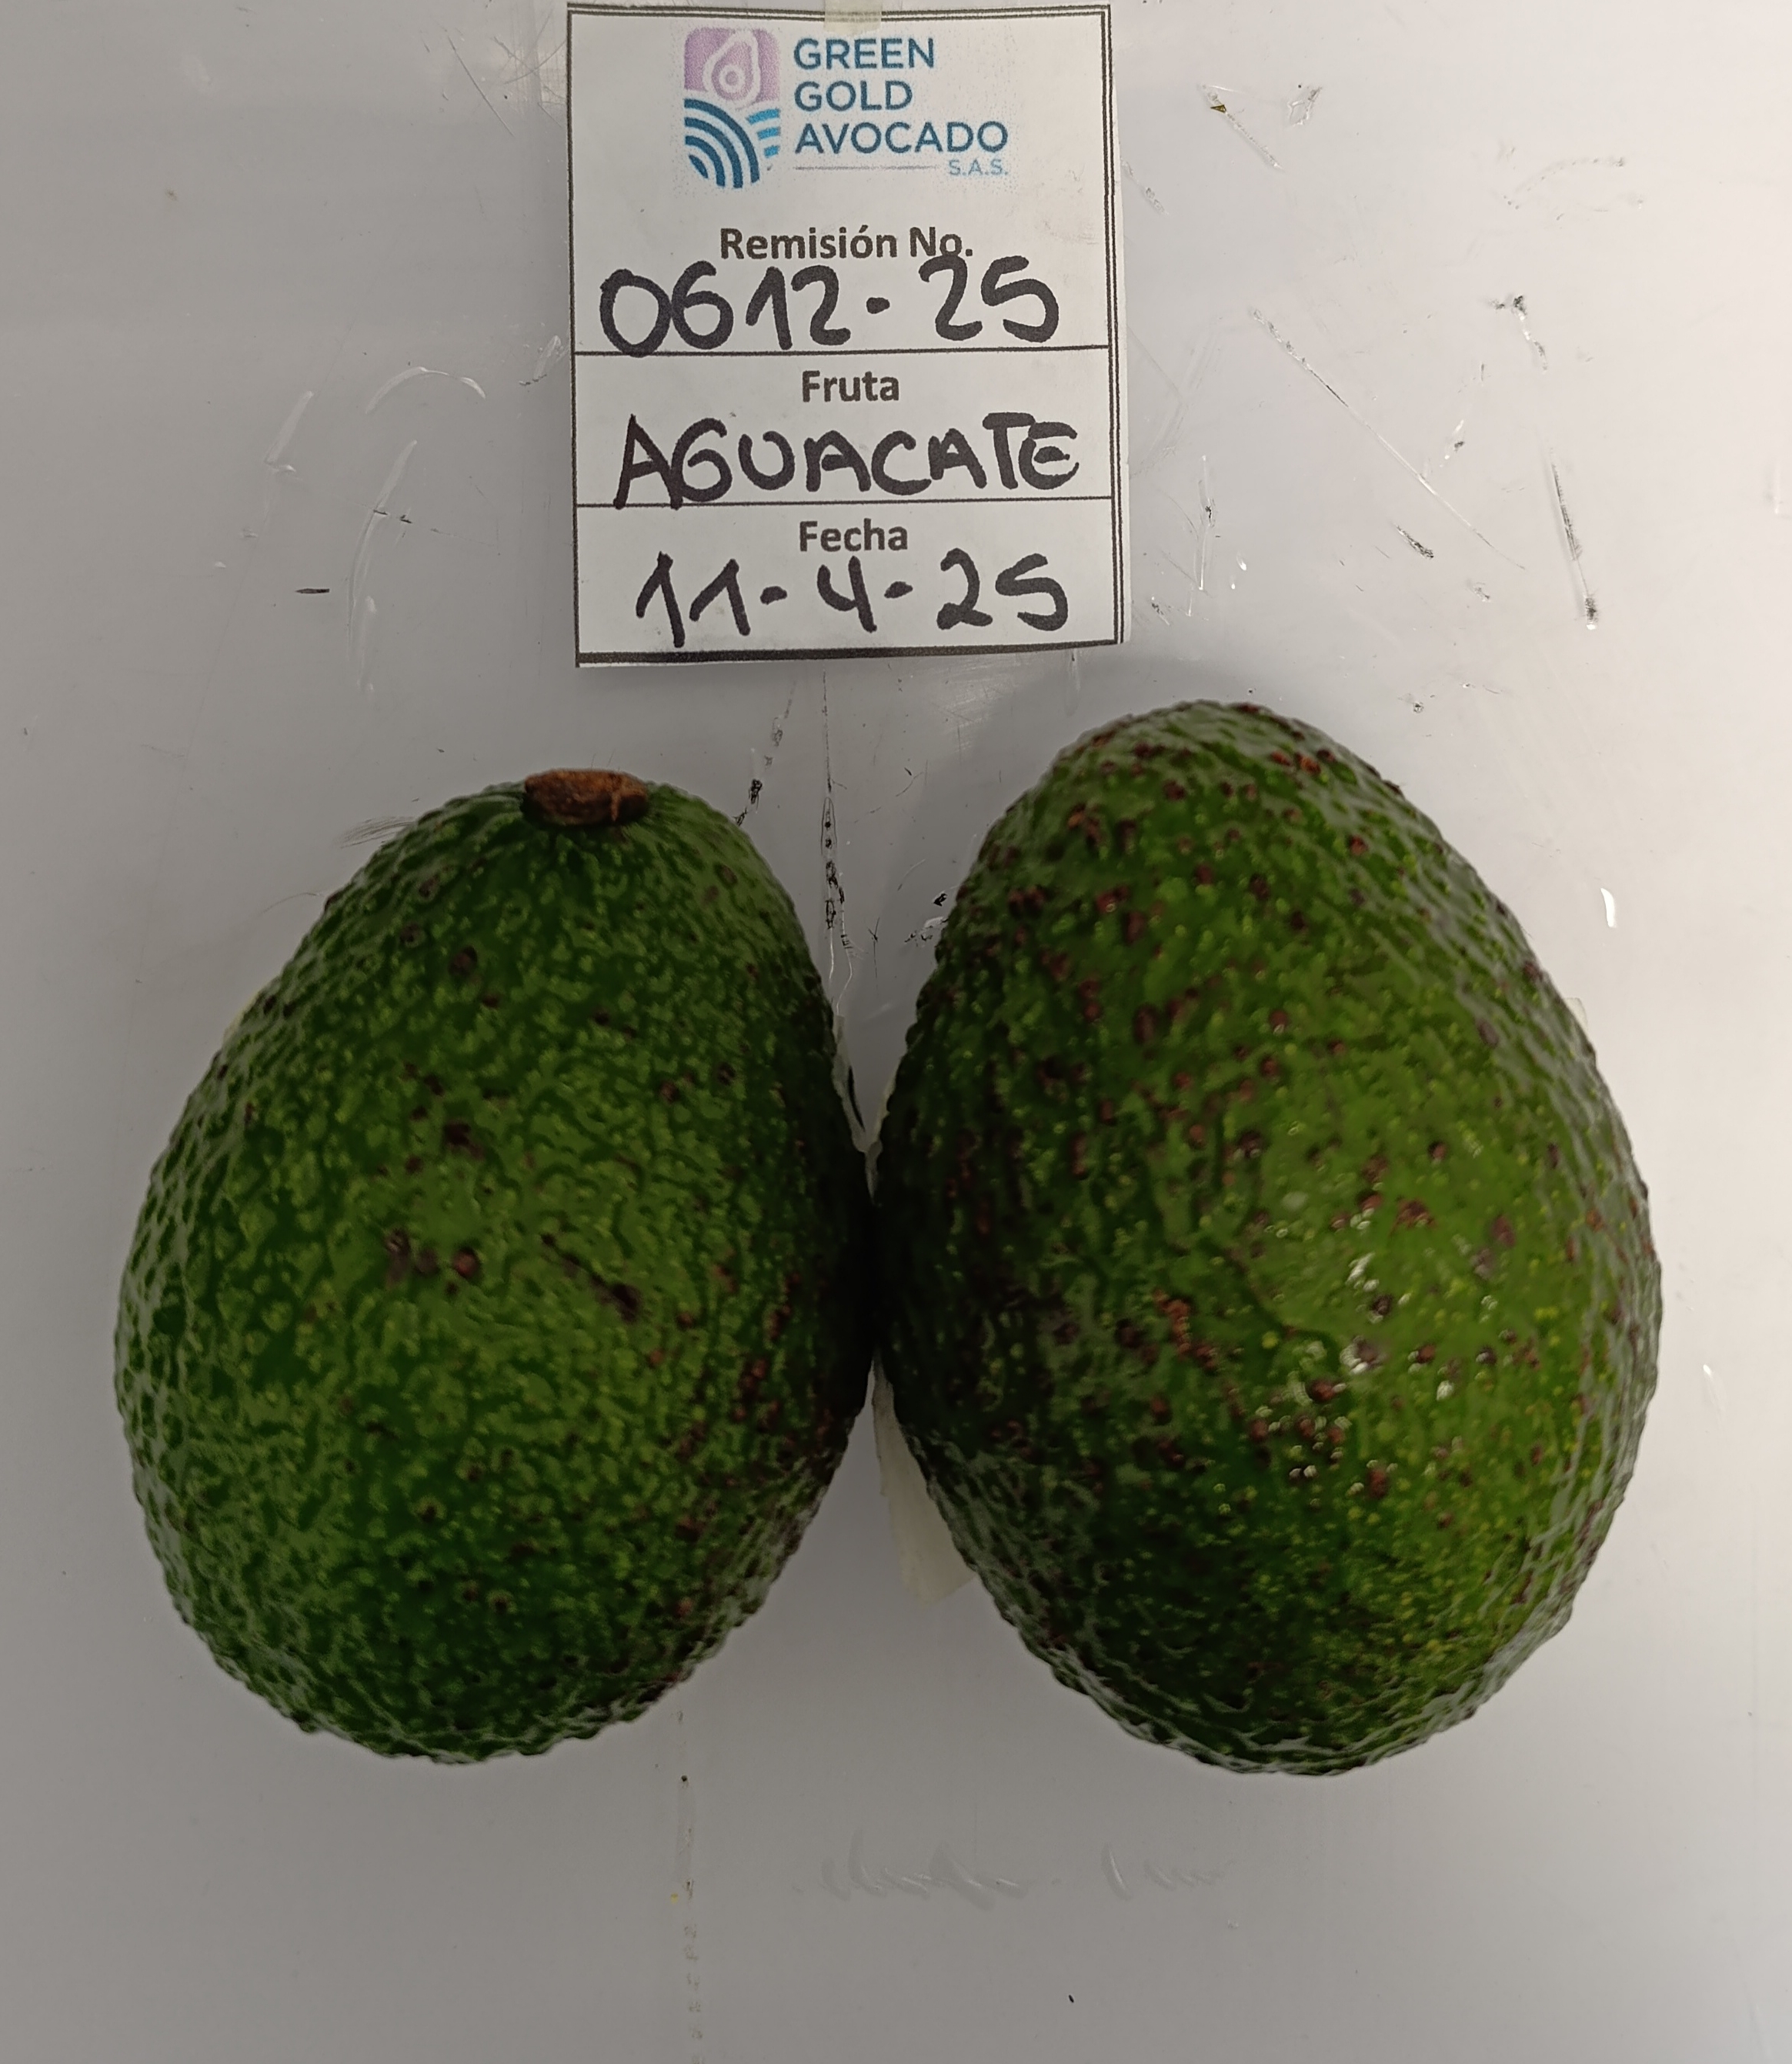 GREEN
GOLD
AVOCADO
S.A.S.
Remisión No.
0612-25
Fruta
AGUACATE
Fecha
11-4-25